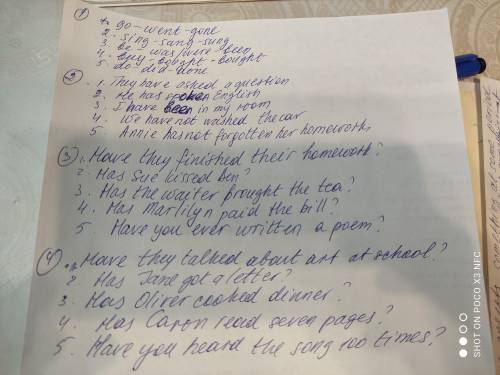 1
1. go-went-gone
2. sing-sang-sung
3. be-was/were-been
4. buy-bought-bought
5. do-did-done
2
1. They have asked a question
2. He has spoken English
3. I have been in my room
4. We have not washed the car
5 Annie has not forgotten her homework
3
1. Have they finished their homework?
2. Has Sue kissed Ben?
3. Has the waiter brought the tea?
4. Has Marlilyn paid the bill?
5. Have you ever written a poem?
4
1. Have they talked about art at school?
2 Has Jane got a letter?
3. Has Oliver cooked dinner?
4. Has Caron read seven pages?
5. Have you heard the song 100 times?
SHOT ON POCO X3 NFC